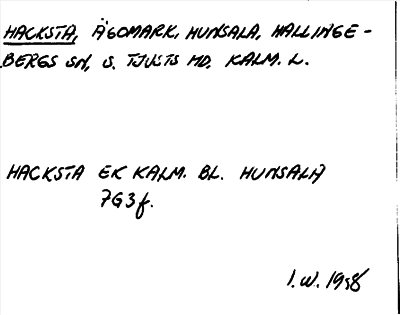 HACKSTA, ÄGOMARK, HUNSALA, HALLINGE-
BERGS SN, S. TJUSTS HD. KALM. L.
HACKSTA EK KALM. BL. HUNSALA
7G3f.
I.W. 1958